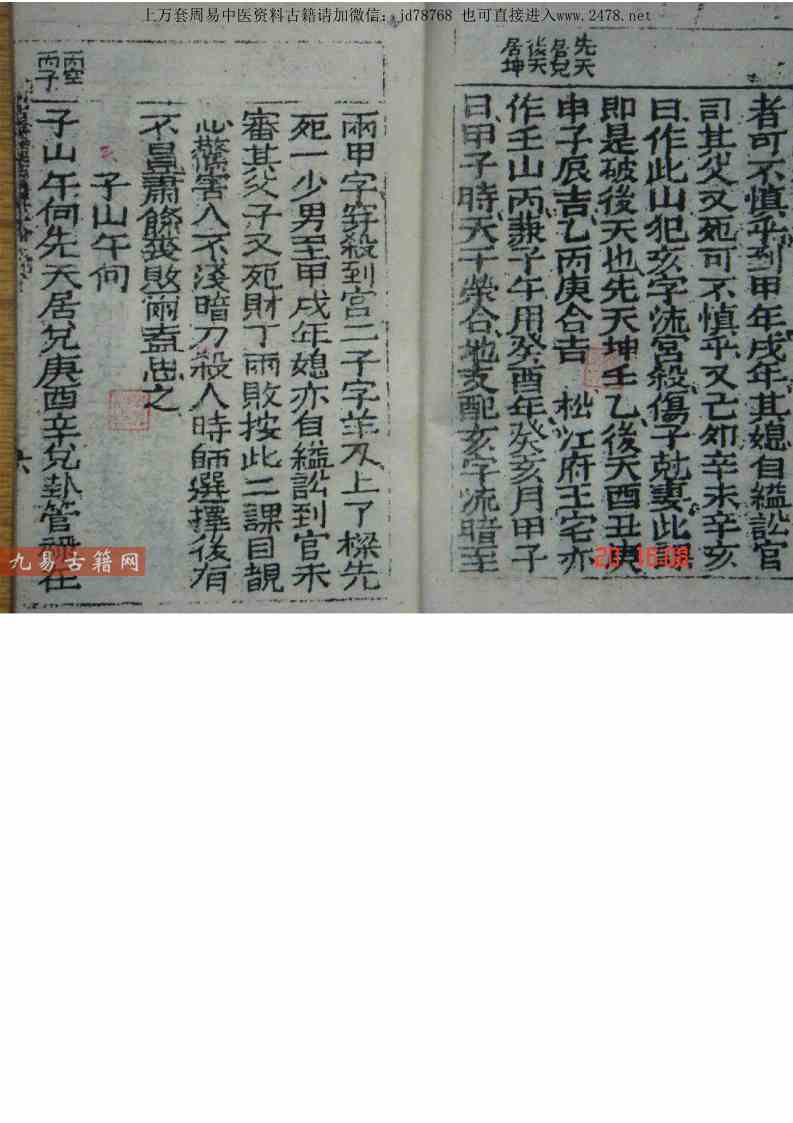 上万套周易中医资料古籍请加微信：jd78768 也可直接进入www.2478.net
先天
居兑
後天
居坤
者可不慎乎到甲年戌年其媳自縊訟官
司其父又死可不慎乎又己卯辛未辛亥
日作此山犯亥字流宮殺傷子尅妻此課
即是破後天也先天坤壬乙後天酉丑庚
申子辰吉乙丙庚合吉 松江府王宅亦
作壬山丙兼子午用癸酉年癸亥月甲子
日甲子時天干榮合地支配亥字流暗至
丙空
丙子
兩甲字穿殺到宮二子字羊刃上了樑先
死一少男至甲戌年媳亦自縊訟到官未
審其父子又死財丁兩敗按此二課目覩
心驚害人不淺暗刀殺人時師選擇後有
不量蕭條喪敗兩
之
子山午向
子山午向先天居兌庚酉辛兌卦管
在
六
九易古籍网